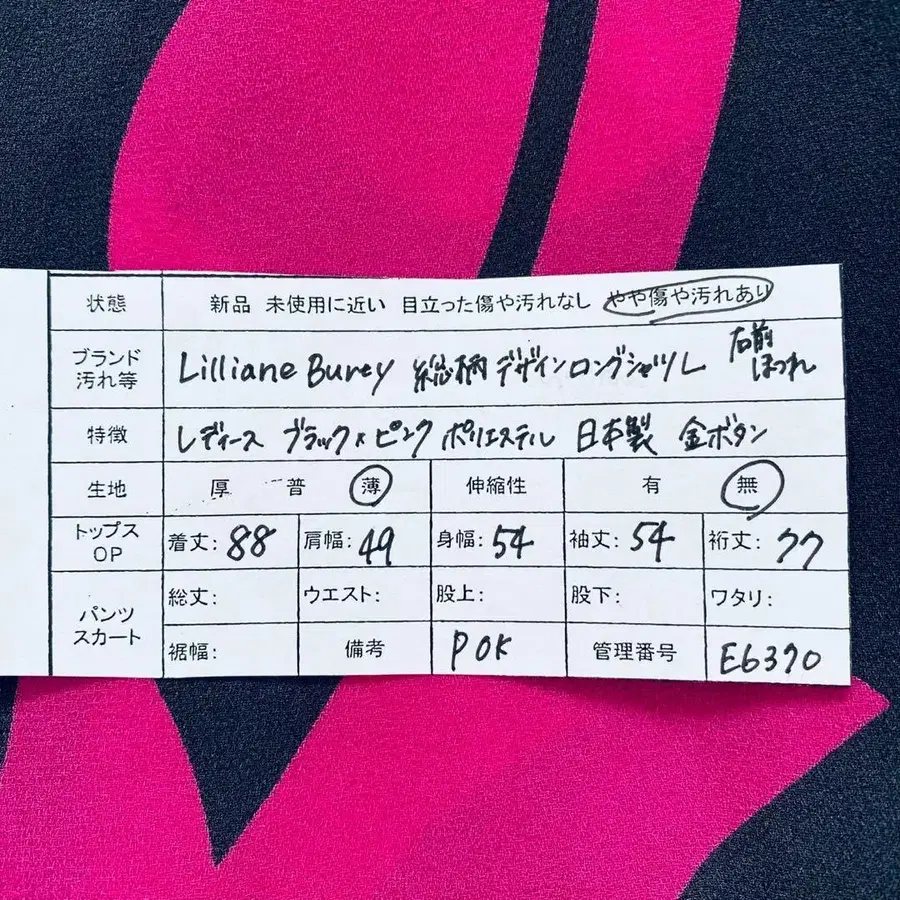 状態 新品 未使用に近い 目立った傷や汚れなし やや傷や汚れあり
ブランド
汚れ等
Lilliane Burey 総柄デザインロングシャツL
右前
ほつれ
特徴 レディース ブラック×ピンク ポリエステル 日本製 金ボタン
生地 厚 普 薄 伸縮性 有 無
トップス
OP
着丈: 88 肩幅: 49 身幅: 54 袖丈: 54 裄丈: 77
パンツ
スカート
総丈: ウエスト: 股上: 股下: ワタリ:
裾幅: 備考 POK 管理番号 E6370